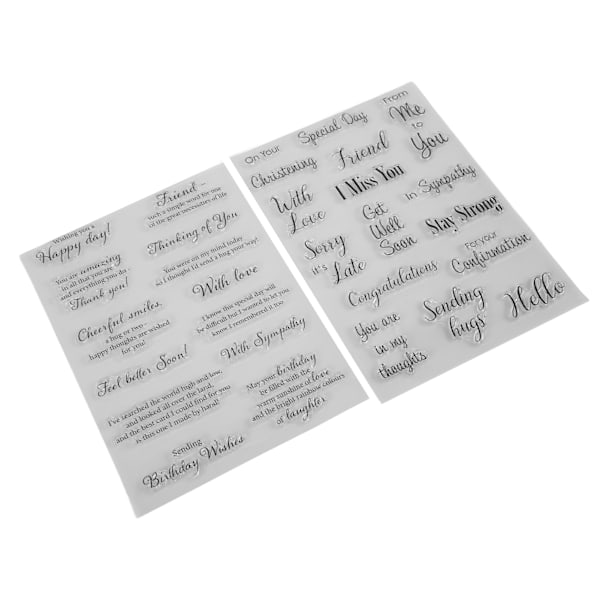 Wishing you a
Happy day!
Friend –
such a simple word for one
of the great necessities of life
You are amazing
in all that you are
and everything you do -
Thank you!
Thinking of You
You were on my mind today
so I thought I'd send a hug your way!
Cheerful smiles,
a hug or two –
happy thoughts are wished
for you!
With love
I know this special day will
be difficult but I wanted to let you
know I remembered it too.
Feel better Soon!
With Sympathy
I've searched the world high and low,
and looked all over the land,
and the best card I could find for you
is this one I made by hand!
May your birthday
be filled with the
warm sunshine of love
and the bright rainbow colours
of laughter
Sending
Birthday Wishes
On Your
Special Day
From
Me
to
You
Christening
Friend
I Miss You
In Sympathy
With
Love
Get
Well
Soon
Stay Strong
Sorry
it's
Late
Congratulations
For your
Confirmation
You are
in my
thoughts
Sending
hugs
Hello